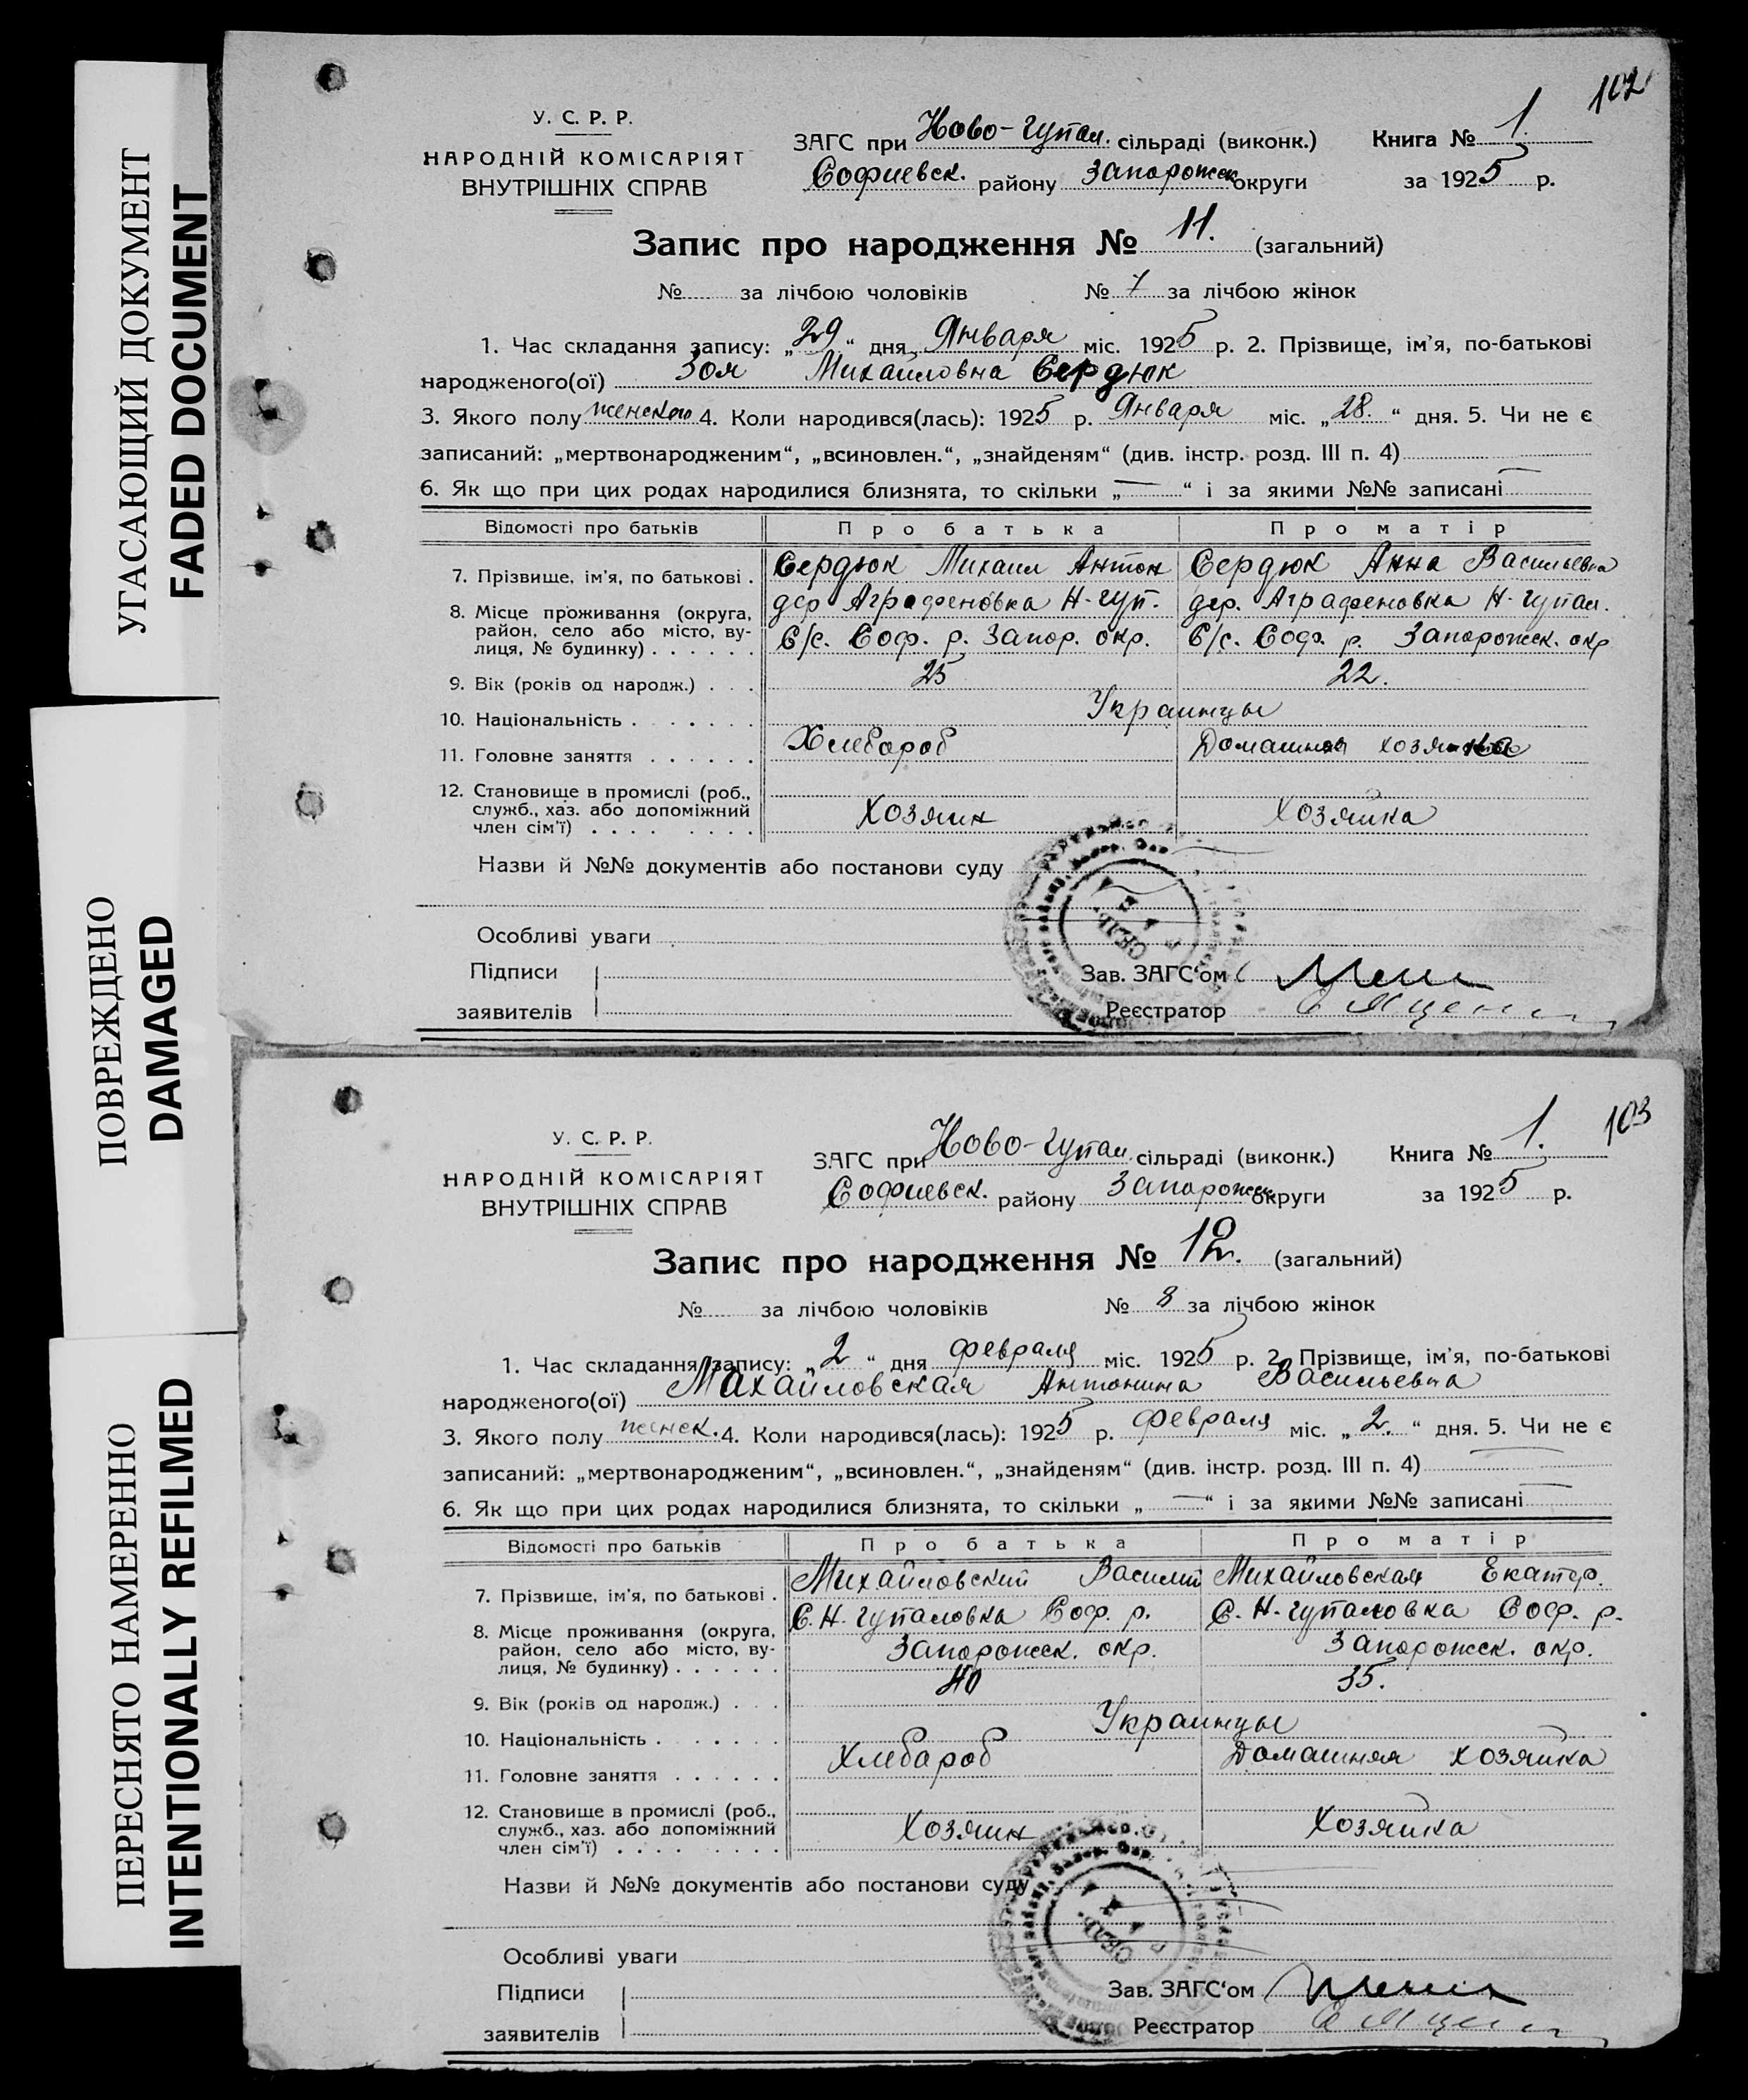 УГАСАЮЩИЙ ДОКУМЕНТ
FADED DOCUMENT
ПОВРЕЖДЕНО
DAMAGED
ПЕРЕСНЯТО НАМЕРЕННО
INTENTIONALLY REFILMED
102
У. С. Р. Р.
НАРОДНІЙ КОМІСАРІЯТ
ВНУТРІШНІХ СПРАВ
ЗАГС при Ново-Гупал. сільраді (виконк.) Книга № 1.
Софиевск. району Запорожск округи за 1925 р.
Запис про народження № 11. (загальний)
№ за лічбою чоловіків № 7 за лічбою жінок
1. Час складання запису: „29“ дня Января міс. 1925 р. 2. Прізвище, ім’я, по-батькові
народженого(ої) Зоя Михайловна Сердюк
3. Якого полу женского 4. Коли народився(лась): 1925 р. Января міс. „28.“ дня. 5. Чи не є
записаний: „мертвонародженим“, „всиновлен.“, „знайденям“ (див. інстр. розд. III п. 4)
6. Як що при цих родах народилися близнята, то скільки „—“ і за якими №№ записані —
Відомості про батьків Про батька Про матір
7. Прізвище, ім’я, по батькові . Сердюк Михаил Антон Сердюк Анна Васильевна
8. Місце проживання (округа, дер Аграфеновка Н-Гуп. дер. Аграфеновка Н-Гупал.
район, село або місто, ву-
лиця, № будинку) . . . . . . С/с. Соф. р. Запор. окр. С/с. Соф. р. Запорожск. окр
9. Вік (років од народж.) . . . 25 22.
10. Національність . . . . . . . Украинцы
11. Головне заняття . . . . . . Хлебороб Домашняя хозяйка
12. Становище в промислі (роб.,
служб., хаз. або допоміжний
член сім’ї) . . . . . . . . Хозяин Хозяйка
Назви й №№ документів або постанови суду
Особливі уваги
Підписи
заявителів
Зав. ЗАГС‘ом
Реєстратор
103
У. С. Р. Р.
НАРОДНІЙ КОМІСАРІЯТ
ВНУТРІШНІХ СПРАВ
ЗАГС при Ново-Гупал. сільраді (виконк.) Книга № 1.
Софиевск. району Запорожск округи за 1925 р.
Запис про народження № 12. (загальний)
№ за лічбою чоловіків № 8 за лічбою жінок
1. Час складання запису: „2“ дня февраля міс. 1925 р. 2. Прізвище, ім’я, по-батькові
народженого(ої) Михайловская Антонина Васильевна
3. Якого полу женск. 4. Коли народився(лась): 1925 р. февраля міс. „2.“ дня. 5. Чи не є
записаний: „мертвонародженим“, „всиновлен.“, „знайденям“ (див. інстр. розд. III п. 4) —
6. Як що при цих родах народилися близнята, то скільки „—“ і за якими №№ записані —
Відомості про батьків Про батька Про матір
7. Прізвище, ім’я, по батькові . Михайловский Василий Михайловская Екатер.
8. Місце проживання (округа, С. Н-Гупаловка Соф. р. С. Н-Гупаловка Соф. р.
район, село або місто, ву-
лиця, № будинку) . . . . . . Запорожск. окр. Запорожск. окр.
9. Вік (років од народж.) . . . 40 35.
10. Національність . . . . . . . Украинцы
11. Головне заняття . . . . . . Хлебороб Домашняя хозяйка
12. Становище в промислі (роб.,
служб., хаз. або допоміжний
член сім’ї) . . . . . . . . Хозяин Хозяйка
Назви й №№ документів або постанови суду
Особливі уваги
Підписи
заявителів
Зав. ЗАГС‘ом
Реєстратор